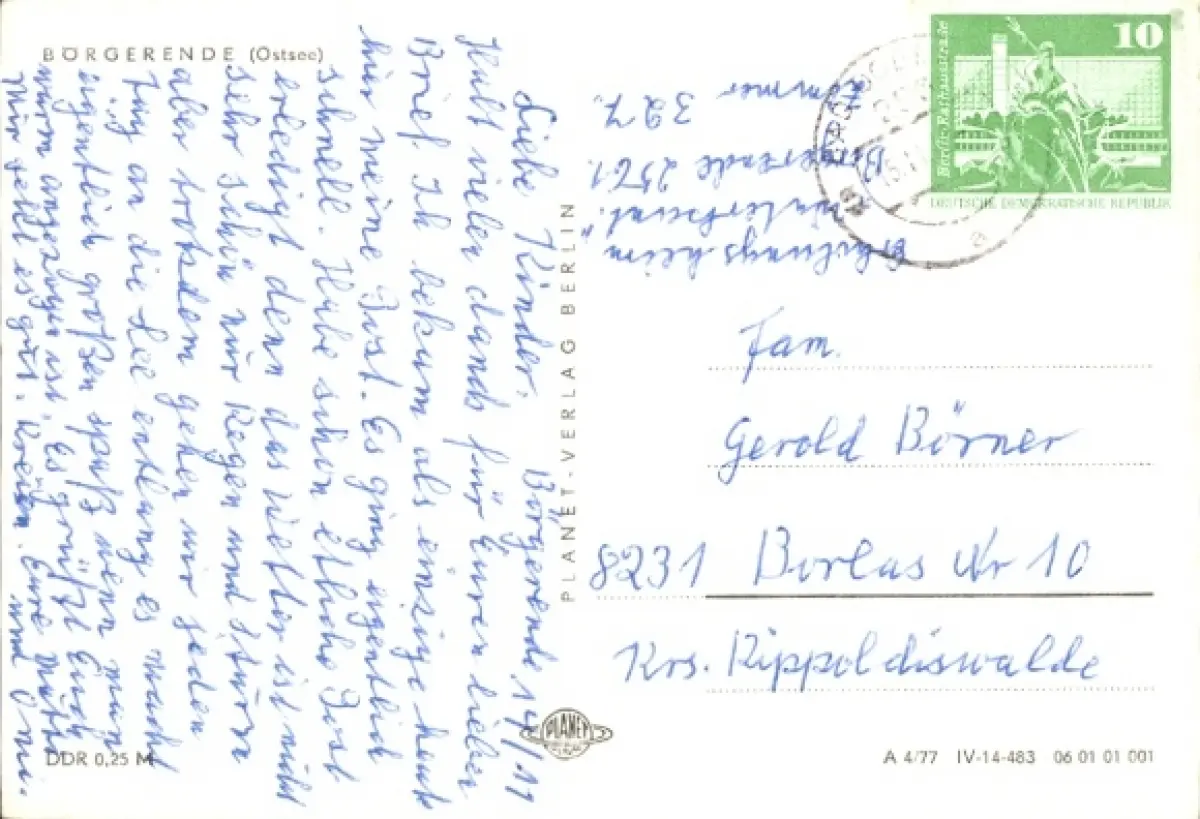 BÖRGERENDE (Ostsee)
Börgerende 14/11
Liebe Kinder,
Habt vielen dank für Euren lieben
Brief. Ich bekam als einzige heut
hir meine Post. Es ging eigentlich
schnell. Habe schon etliche Post
erledigt denn das Wetter ist nicht
sehr schön nur Regen und Sturm
aber trotzdem gehen wir jeden
Tag an die See entlang es macht
eigentlich großen spaß wenn man
warm angezogen ist. Es grüßt Euch
mir geht es gut. Eure Mutti
und Omi.
PLANET-VERLAG BERLIN
Erholungsheim
"Waterkant"
Börgerende 2561
Zimmer 327.
10
Berlin-Rathausstraße
DEUTSCHE DEMOKRATISCHE REPUBLIK
Fam.
Gerold Börner
8231 Borlas Nr 10
Krs. Dippoldiswalde
PLANET
VERLAG
DDR 0,25 M
A 4/77 IV-14-483 06 01 01 001